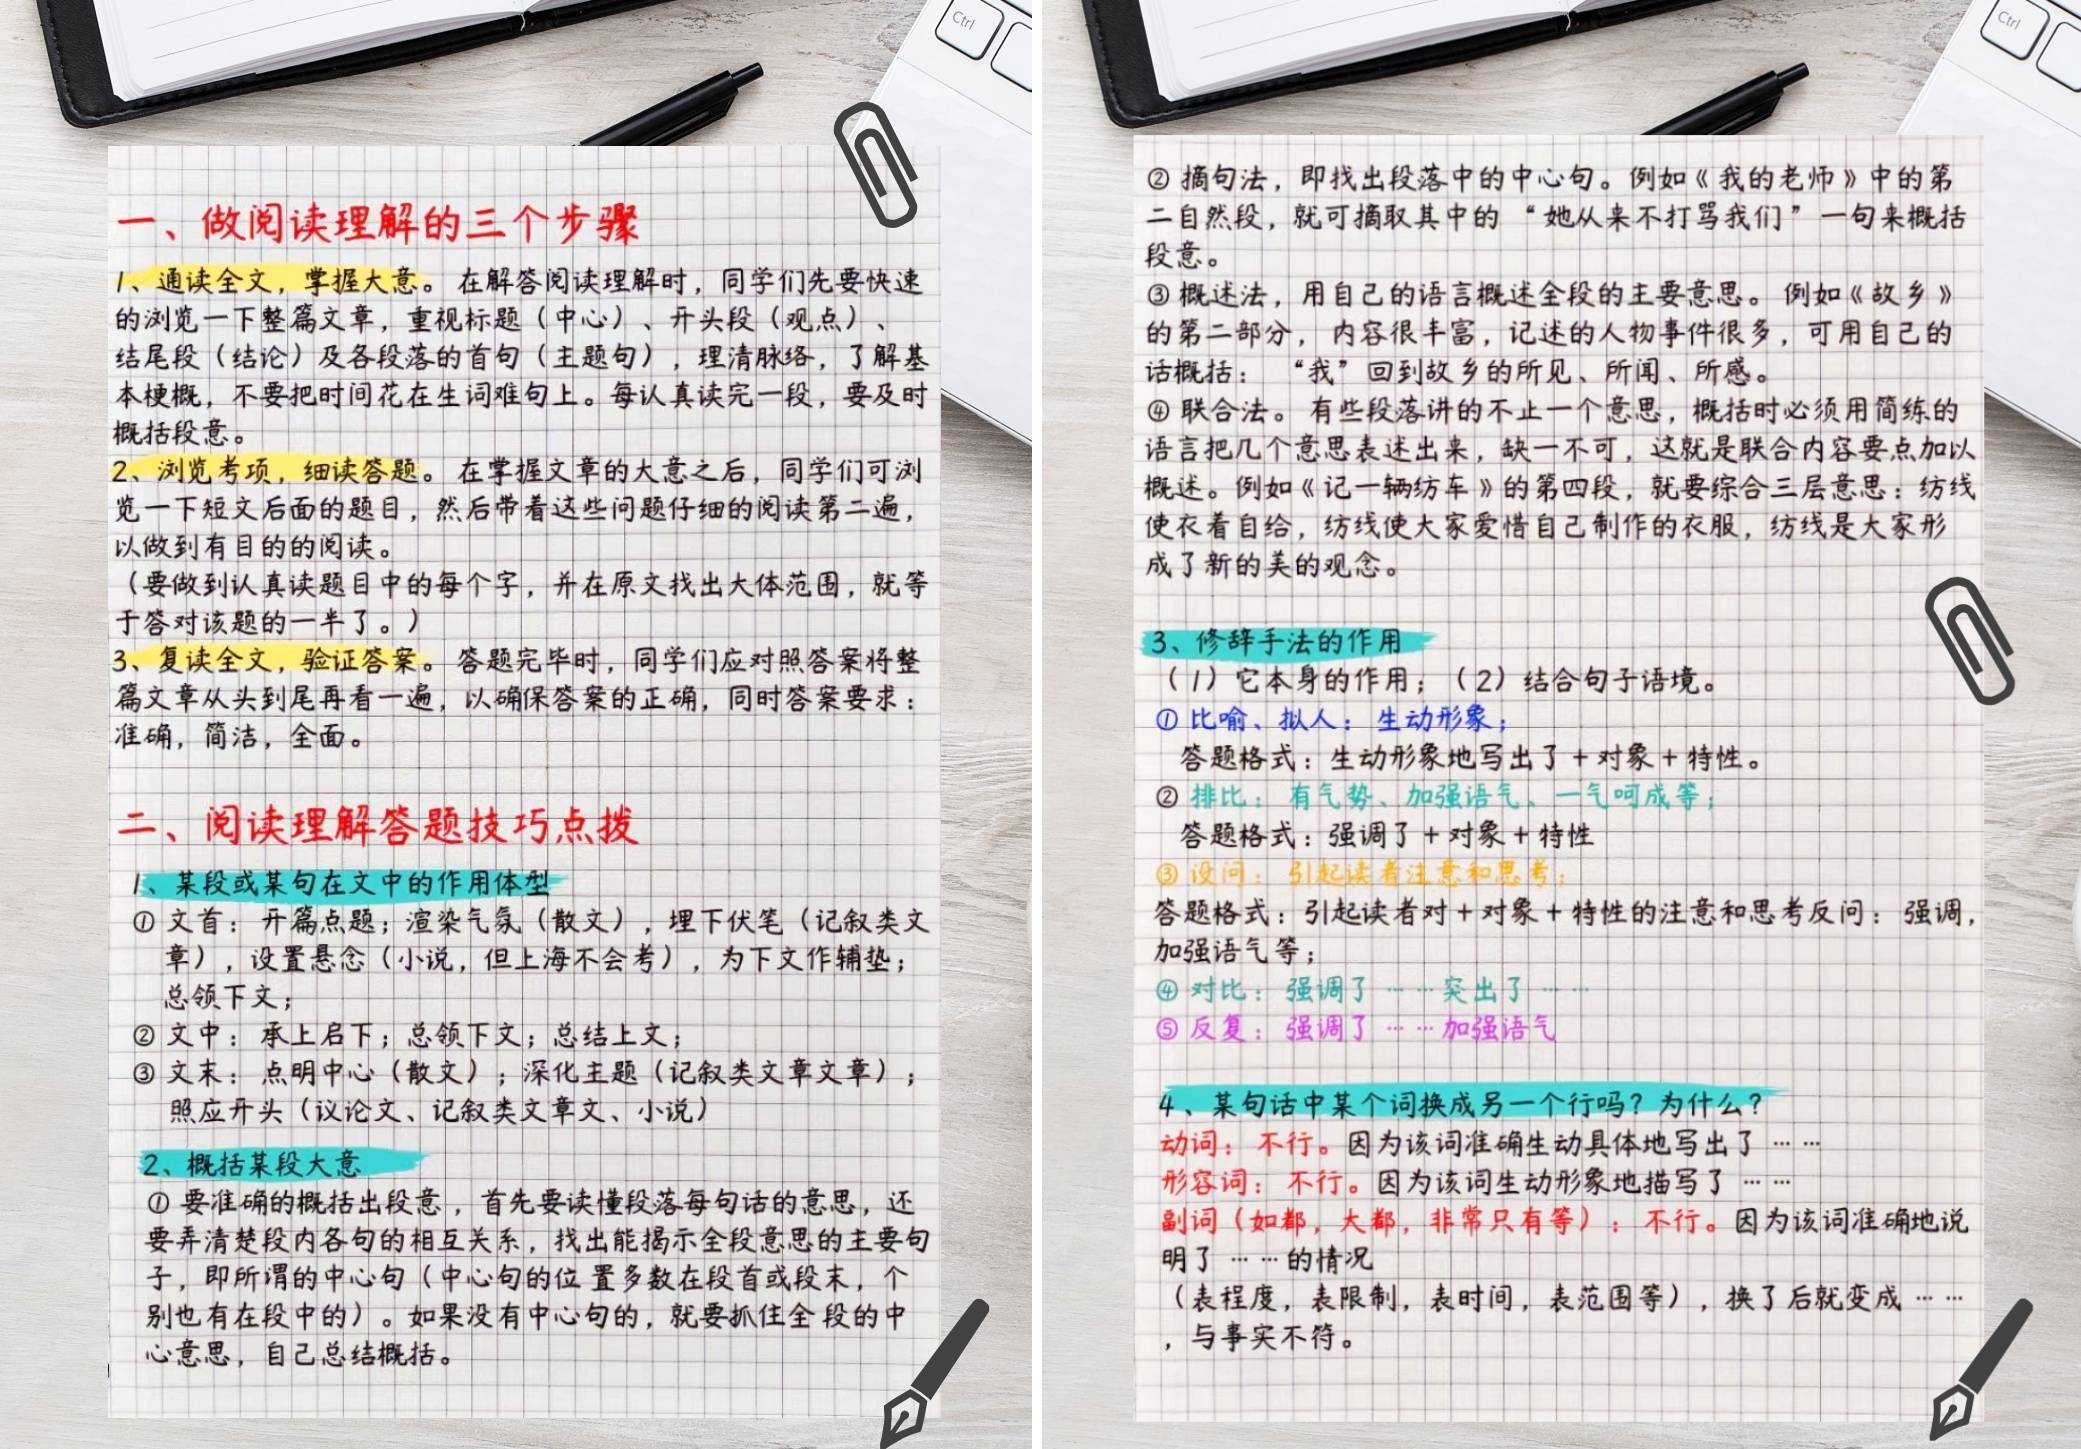 Ctrl
一、做阅读理解的三个步骤
1、通读全文，掌握大意。在解答阅读理解时，同学们先要快速
的浏览一下整篇文章，重视标题（中心）、开头段（观点）、
结尾段（结论）及各段落的首句（主题句），理清脉络，了解基
本梗概，不要把时间花在生词难句上。每认真读完一段，要及时
概括段意。
2、浏览考项，细读答题。在掌握文章的大意之后，同学们可浏
览一下短文后面的题目，然后带着这些问题仔细的阅读第二遍，
以做到有目的的阅读。
（要做到认真读题目中的每个字，并在原文找出大体范围，就等
于答对该题的一半了。）
3、复读全文，验证答案。答题完毕时，同学们应对照答案将整
篇文章从头到尾再看一遍，以确保答案的正确，同时答案要求：
准确，简洁，全面。
二、阅读理解答题技巧点拨
1、某段或某句在文中的作用体型
① 文首：开篇点题；渲染气氛（散文），埋下伏笔（记叙类文
章），设置悬念（小说，但上海不会考），为下文作辅垫；
总领下文；
② 文中：承上启下；总领下文；总结上文；
③ 文末：点明中心（散文）；深化主题（记叙类文章文章）；
照应开头（议论文、记叙类文章文、小说）
2、概括某段大意
① 要准确的概括出段意，首先要读懂段落每句话的意思，还
要弄清楚段内各句的相互关系，找出能揭示全段意思的主要句
子，即所谓的中心句（中心句的位 置多数在段首或段末，个
别也有在段中的）。如果没有中心句的，就要抓住全 段的中
心意思，自己总结概括。
Ctrl
② 摘句法，即找出段落中的中心句。例如《我的老师》中的第
二自然段，就可摘取其中的 “她从来不打骂我们”一句来概括
段意。
③ 概述法，用自己的语言概述全段的主要意思。例如《故乡》
的第二部分，内容很丰富，记述的人物事件很多，可用自己的
话概括： “我”回到故乡的所见、所闻、所感。
④ 联合法。 有些段落讲的不止一个意思，概括时必须用简练的
语言把几个意思表述出来，缺一不可，这就是联合内容要点加以
概述。例如《记一辆纺车》的第四段，就要综合三层意思：纺线
使衣着自给，纺线使大家爱惜自己制作的衣服，纺线是大家形
成了新的美的观念。
3、修辞手法的作用
（1）它本身的作用；（2）结合句子语境。
① 比喻、拟人：生动形象；
答题格式：生动形象地写出了+对象+特性。
② 排比：有气势、加强语气、一气呵成等；
答题格式：强调了+对象+特性
③ 设问：引起读者注意和思考；
答题格式：引起读者对+对象+特性的注意和思考反问：强调，
加强语气等；
④ 对比：强调了……突出了……
⑤ 反复：强调了……加强语气
4、某句话中某个词换成另一个行吗？为什么？
动词：不行。因为该词准确生动具体地写出了……
形容词：不行。因为该词生动形象地描写了……
副词（如都，大都，非常只有等）：不行。因为该词准确地说
明了……的情况
（表程度，表限制，表时间，表范围等），换了后就变成……
，与事实不符。